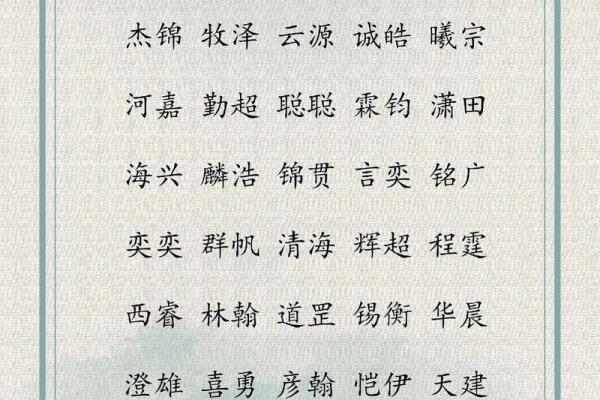 杰锦 牧泽 云源 诚皓 曦宗
河嘉 勤超 聪聪 霖钧 潇田
海兴 麟浩 锦贯 言奕 铭广
奕奕 群帆 清海 辉超 程霆
西睿 林翰 道罡 锡衡 华晨
澄雄 喜勇 彦翰 恺伊 天建